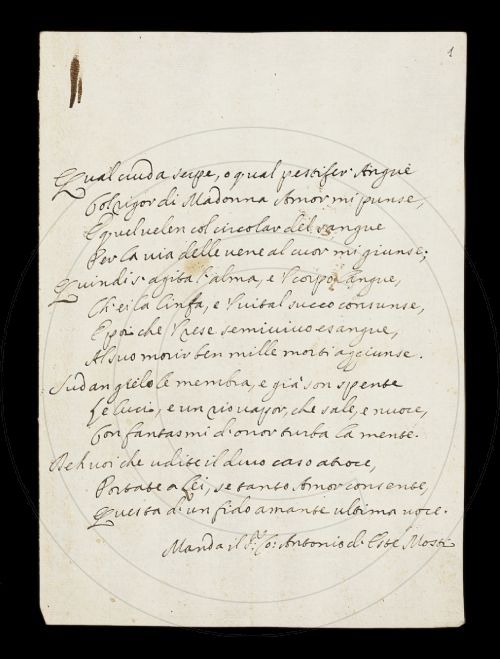 1
Qual cruda serpe, o qual pestifer' Angue
Col rigor di Madonna Amor mi punse,
E quel velen col circolar del sangue
Per la via delle vene al cuor mi giunse;
Quindi s'agita l'alma, e 'l corpo langue,
Ch'ei la linfa, e 'l vital succo consunse,
E poi che 'l rese semivivo esangue,
Al suo morir ben mille morti aggiunse.
Sudan gielo le membra, e già son spente
Le luci, e un rio vapor, che sale, e nuoce,
Con fantasmi d'onor turba la mente.
Deh voi che udite il duro caso atroce,
Portate a Lei, se tanto Amor consente,
Questa d'un fido amante ultima voce.
Manda il Sr. Co: Antonio d'Este Mosti